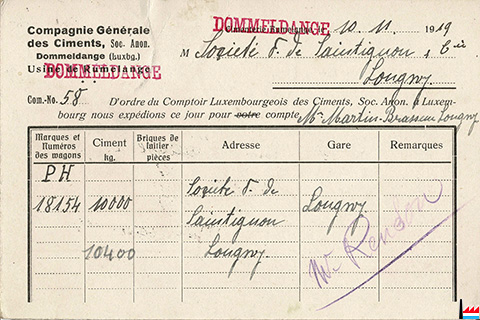 Compagnie Générale
des Ciments, Soc. Anon.
Dommeldange (Luxbg.)
DOMMELDANGE
DOMMELDANGE 10. 11. 1919
M Société F. de Saintignon & Cie
Longwy
Com.-No. 58 D'ordre du Comptoir Luxembourgeois des Ciments, Soc. Anon. à Luxem-
bourg nous expédions ce jour pour votre compte, Mr Martin-Brasseur Longwy
Marques et Numéros des wagons Ciment kg. Briques de laitier pièces Adresse Gare Remarques
PH
18154 10000 Société F. de
Saintignon Longwy
10400 Longwy.